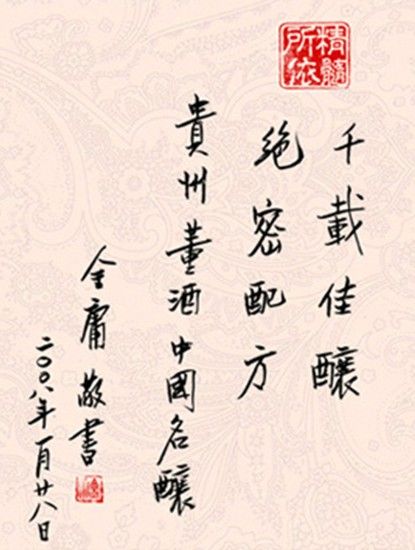 精髓所依
千載佳釀
絶密配方
貴州董酒中國名釀
金庸敬書
二〇〇八年一月廿八日